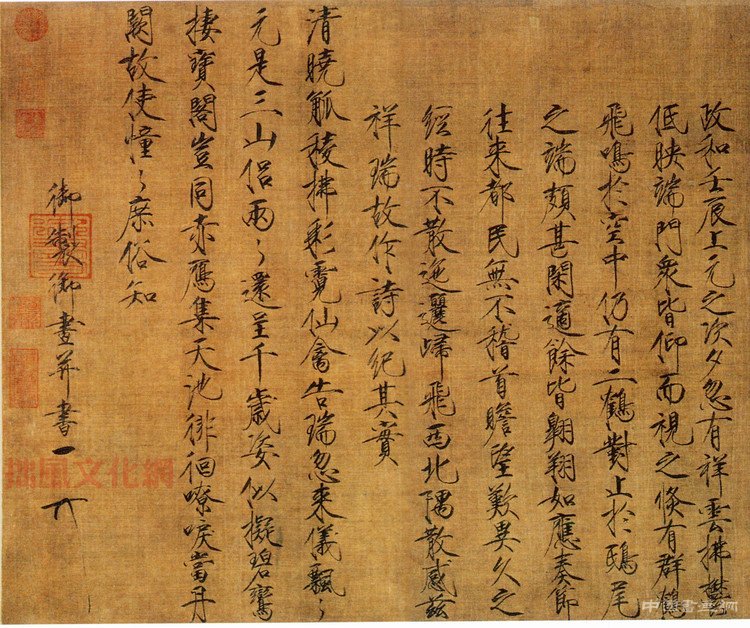 政和壬辰上元之次夕忽有祥雲拂鬱
低映端門衆皆仰而視之倏有群鶴
飛鳴於空中仍有二鶴對止於鴟尾
之端頗甚閑適餘皆翱翔如應奏節
往来都民無不稽首瞻望歎異久之
經時不散迤邐歸飛西北隅散感兹
祥瑞故作詩以紀其實
清曉觚稜拂彩霓仙禽告瑞忽来儀飄〻
元是三山侣兩〻還呈千歲姿似擬碧鸞
棲寶閣豈同赤鴈集天池徘徊嘹唳當丹
闕故使憧〻庶俗知
御製御畫并書
拙風文化網
中國書畫網